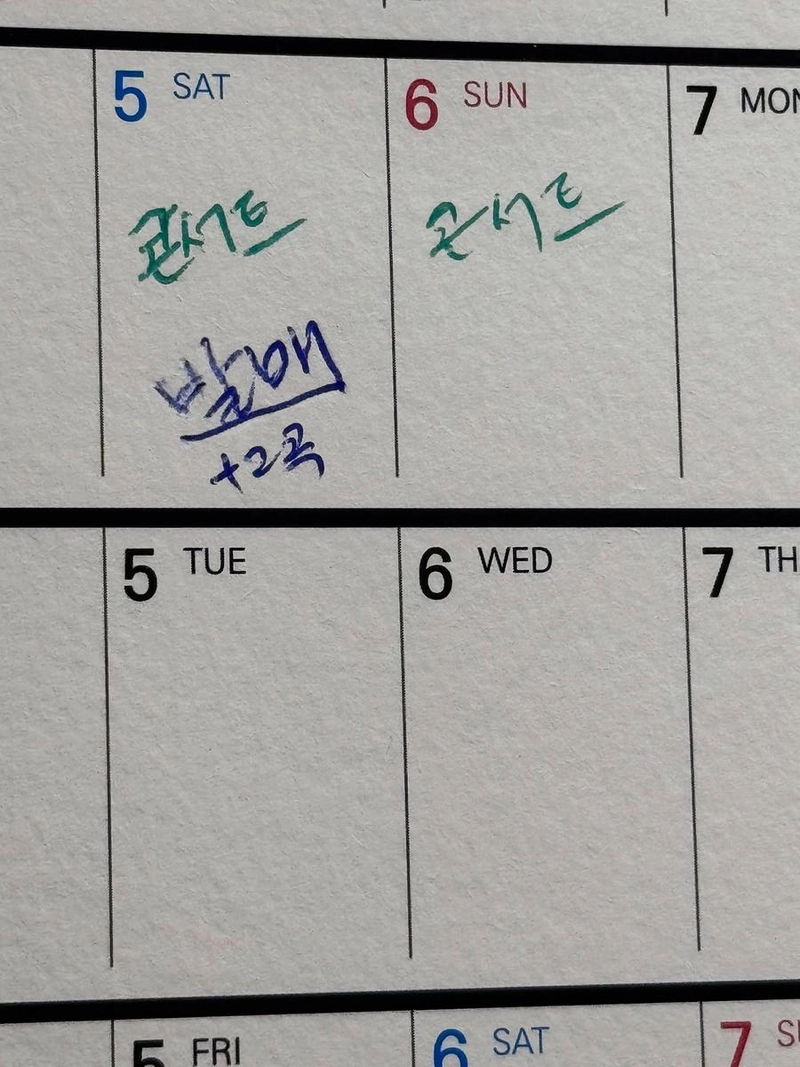 5 SAT
6 SUN
7 MON
콘서트
콘서트
발매
+2곡
5 TUE
6 WED
7 TH
5 FRI
6 SAT
7 SU